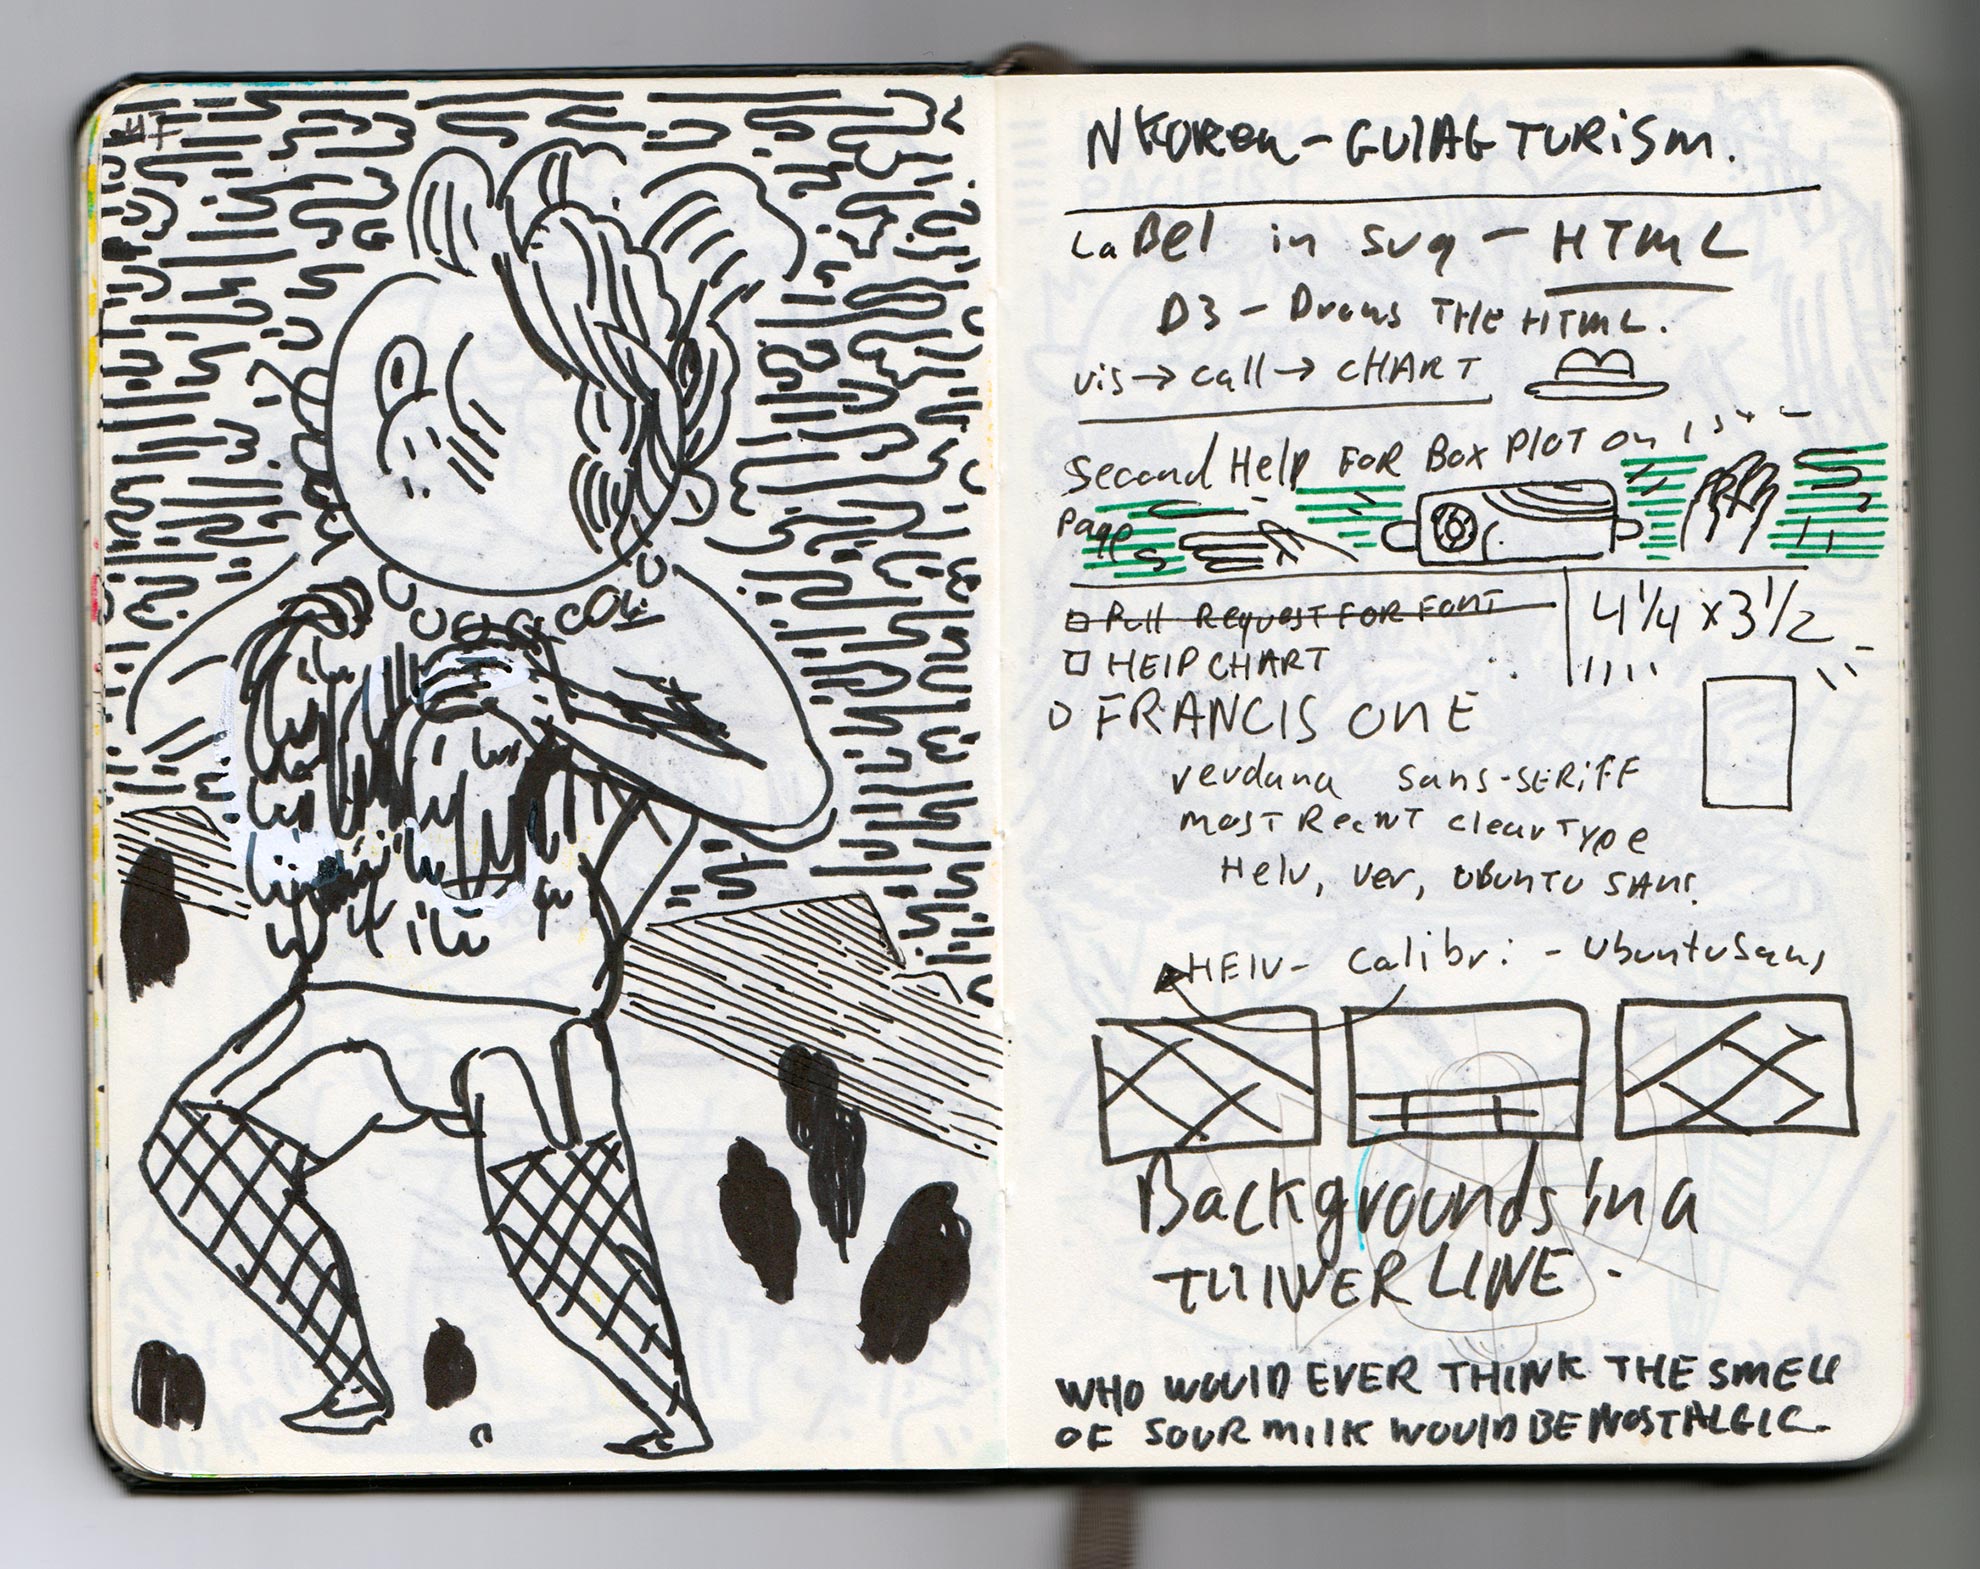 N KOREA - GULAG TURISM.
LaBel in svg - HTML
D3 - Draws THe HTML.
vis → call → CHART
Second Help FOR Box PLOT on 1st
Page
Pull Request FOR FONT
4 1/4 x 3 1/2
HElP CHART
FRANCIS ONE
verdana sans-SERiFF
mosT RecenT clearType
Helv, ver, UBUNTU SANS
HElv - calibri - UbuntuSans
Backgrounds in a
LINE.
WHO WOULD EVER THINK THE SMELL
OF SOUR MILK WOULD BE NOSTALGIC.